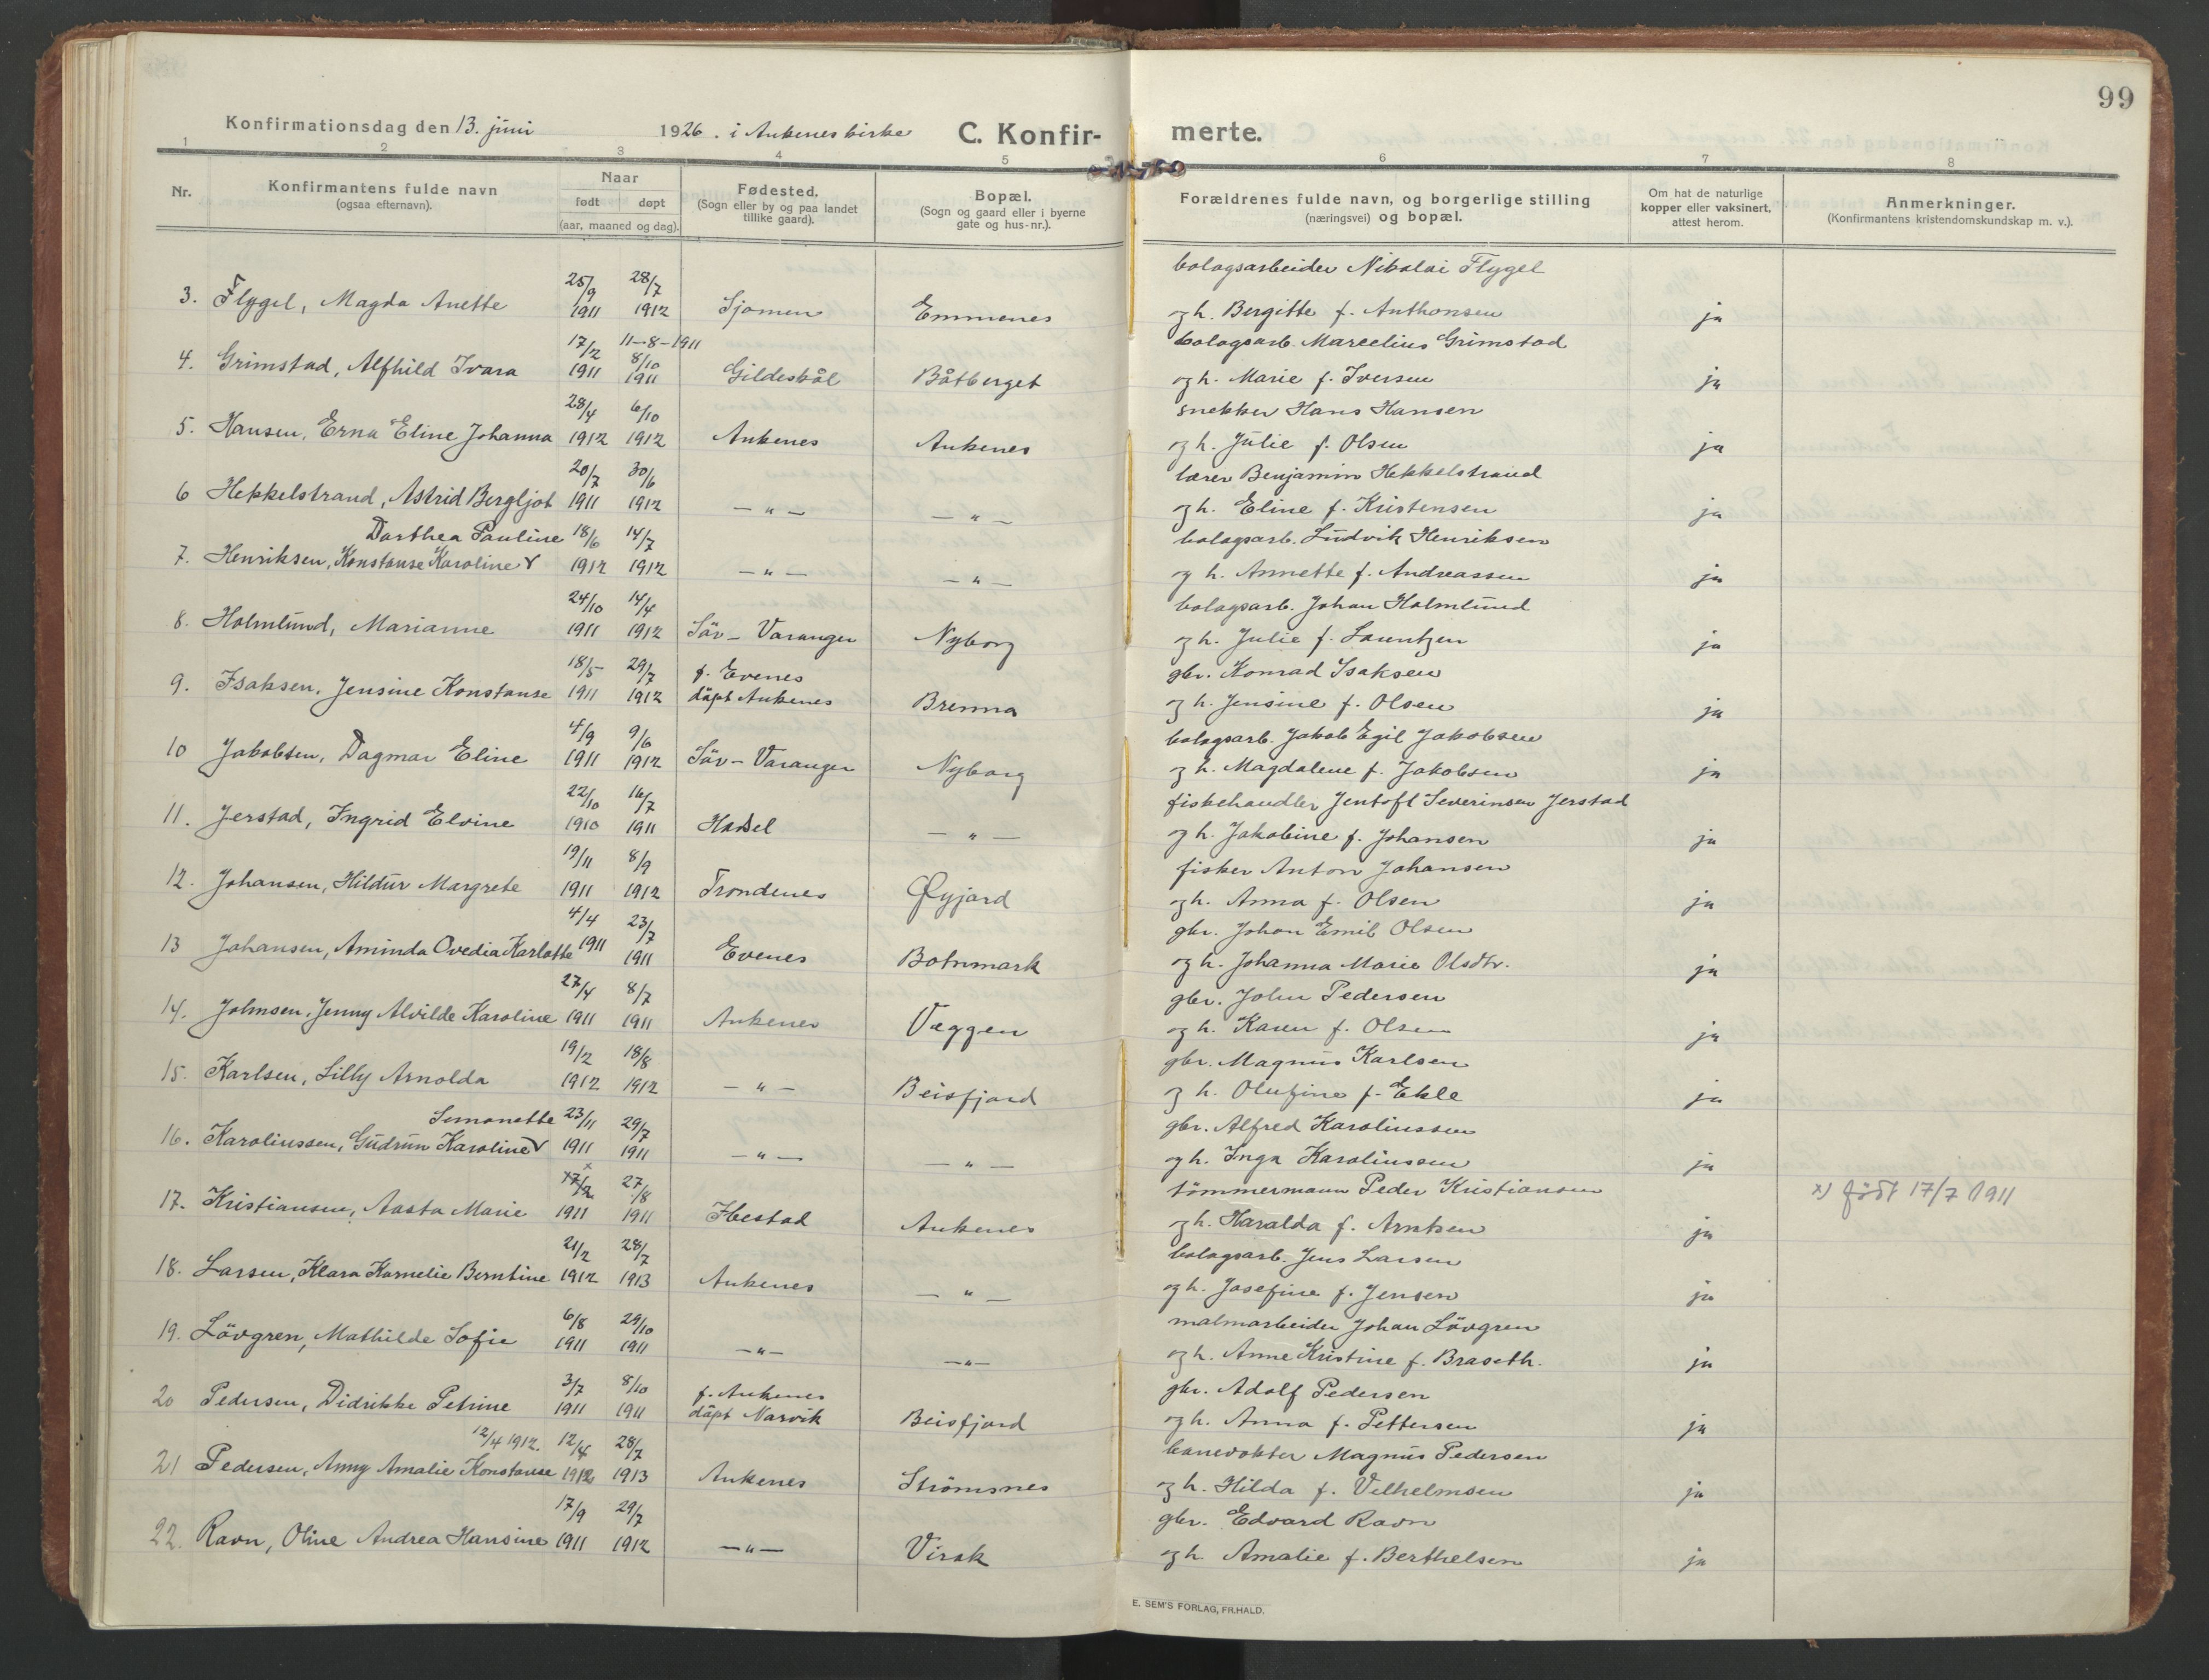 99
Konfirmationsdag den 13. juni 1926. i Ankenes kirke C. Konfirmerte.
1 2 3 4 5 6 7 8
Nr.
Konfirmantens fulde navn
(ogsaa efternavn).
Naar
født døpt
(aar, maaned og dag).
Fødested.
(Sogn eller by og paa landet
tillike gaard).
Bopæl.
(Sogn og gaard eller i byerne
gate og hus-nr.).
Forældrenes fulde navn, og borgerlige stilling
(næringsvei) og bopæl.
Om hat de naturlige
kopper eller vaksinert,
attest herom.
Anmerkninger.
(Konfirmantens kristendomskundskap m. v.).
25/9 28/7 bolagsarbeider Nikolai Flygel
3. Flygel, Magda Anette 1911 1912 Sjomen Emmenes og h. Bergitte f. Anthonsen ja
17/2 11-8-1911 bolagsarb. Marcelius Grimstad
4. Grimstad, Alfhild Ivara 1911 8/10 1911 Gildeskål Båtberget og h. Marie f. Iversen ja
28/4 6/10 snekker Hans Hansen
5. Hansen, Erna Eline Johanna 1912 1912 Ankenes Ankenes og h. Julie f. Olsen ja
20/7 30/6 lærer Benjamin Hekkelstrand
6 Hekkelstrand, Astrid Bergljot 1911 1912 — " — — " — og h. Eline f. Kristensen ja
Dorthea Pauline 18/6 14/7 bolagsarb. Ludvik Henriksen
7. Henriksen, Konstanse Karoline 1912 1912 — " — — " — og h. Annette f. Andreassen ja
24/10 14/4 bolagsarb. Johan Holmlund
8. Holmlund, Marianne 1911 1912 Sör-Varanger Nyborg og h. Julie f. Lauritzen ja
18/5 29/7 f. Evenes gbr. Konrad Isaksen
9. Isaksen, Jensine Konstanse 1911 1912 döpt Ankenes Brenna og h. Jensine f. Olsen ja
4/9 9/6 bolagsarb. Jakob Egil Jakobsen
10 Jakobsen, Dagmar Eline 1911 1912 Sör-Varanger Nyborg og h. Magdalene f. Jakobsen ja
22/10 16/7 fiskehandler Jentoft Severinsen Jerstad
11. Jerstad, Ingrid Elvine 1910 1911 Hadsel — " — og h. Jakobine f. Johansen ja
19/11 8/9 fisker Anton Johansen
12. Johansen, Hildur Margrete 1911 1912 Trondenes Øyjord og h. Anna f. Olsen ja
4/4 23/7 gbr. Johan Emil Olsen
13 Johansen, Aminda Ovedia Karlotte 1911 1911 Evenes Botnmark og h. Johanna Marie Olsdtr. ja
27/4 8/7 gbr. John Pedersen
14. Johnsen, Jenny Alvilde Karoline 1911 1911 Ankenes Væggen og h. Karen f. Olsen ja
19/2 18/8 gbr. Magnus Karlsen
15. Karlsen, Lilly Arnolda 1912 1912 — " — Beisfjord og h. Olufine f. Ekle ja
Simonette 23/11 29/7 gbr. Alfred Karoliussen
16. Karoliussen, Gudrun Karoline 1911 1911 — " — — " — og h. Inga Karoliussen ja
17/2 x 27/8 tömmermann Peder Kristiansen x) født 17/7 1911
17. Kristiansen, Aasta Marie 1911 1911 Ibestad Ankenes og h. Haralda f. Arntsen ja
21/2 28/7 bolagsarb. Jens Larsen
18. Larsen, Klara Kornelie Berntine 1912 1913 Ankenes — " — og h. Josefine f. Jensen ja
6/8 29/10 malmarbeider Johan Lövgren
19. Lövgren, Mathilde Sofie 1911 1911 — " — — " — og h. Anne Kristine f. Braseth. ja
3/7 8/10 f. Ankenes gbr. Adolf Pedersen
20 Pedersen, Didrikke Petrine 1911 1911 döpt Narvik Beisfjord og h. Anna f. Pettersen ja
12/4 1912. 12/4 28/7 banevokter Magnus Pedersen
21 Pedersen, Anny Amalie Konstanse 1912 1913 Ankenes Strömsnes og h. Hilda f. Vilhelmsen ja
17/9 29/7 gbr. Edvard Ravn
22. Ravn, Oline Andrea Hansine 1911 1912 — " — Virak og h. Amalie f. Berthelsen ja
E. SEM'S FORLAG, FR.HALD.